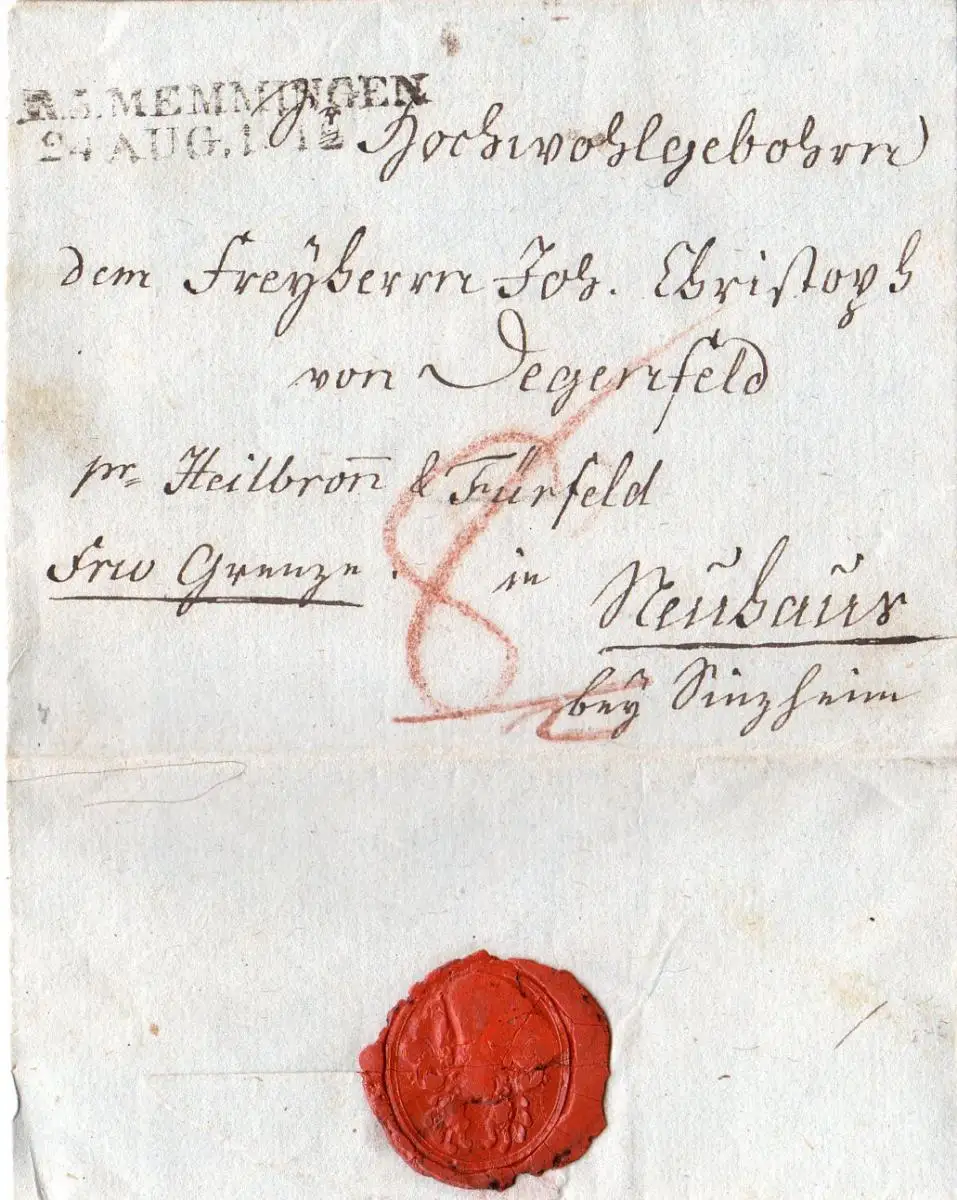 R.S. MEMMINGEN
24 AUG. 1812
Sr Hochwohlgebohrn
dem Freyherrn Joh. Christoph
von Degenfeld
pr Heilbron̄ & Fürfeld
Frco Grenze. in Neuhaus
bey Sinzheim
8